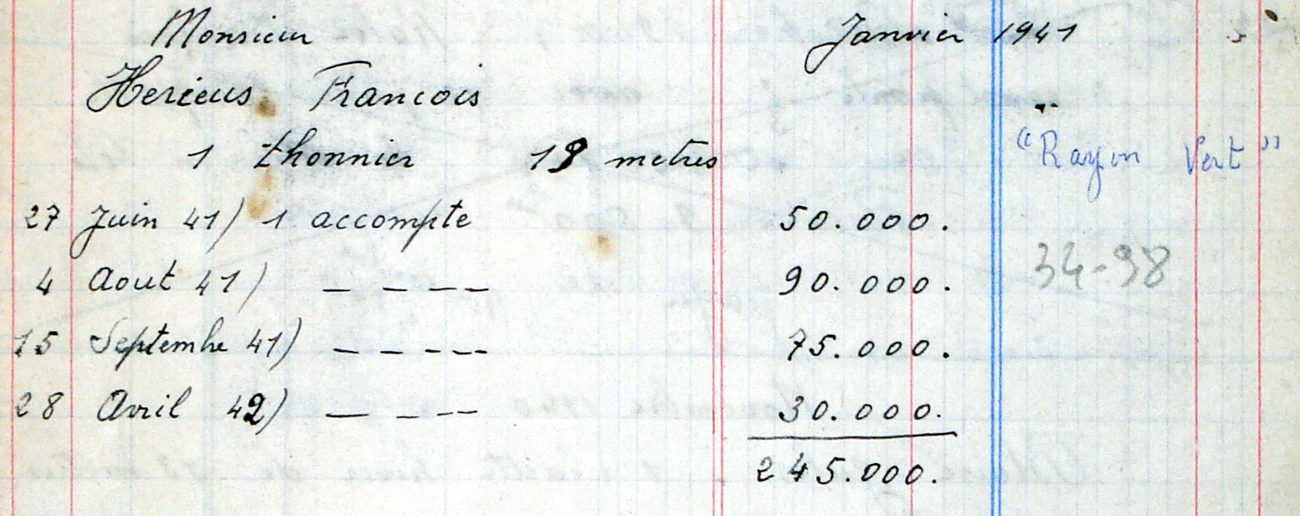 Monsieur Janvier 1941
Herieus François
1 thonnier 18 metres "Rayon Vert"
27 Juin 41) 1 accompte 50.000.
34-98
4 Aout 41) — — — — 90.000.
15 Septembre 41) — — — — 75.000.
28 Avril 42) — — — — 30.000.
245.000.